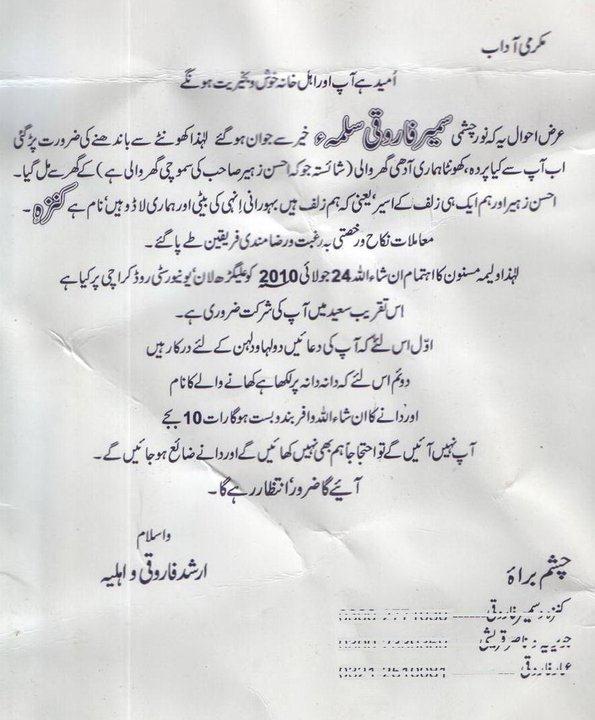 مکرمی آداب
اُمید ہے آپ اور اہل خانہ خوش و بخیریت ہونگے
عرض احوال یہ کہ نور چشمی سمیر فاروقی سلمہٗ خیر سے جوان ہو گئے لہٰذا کھونٹے سے باندھنے کی ضرورت پڑ گئی
اب آپ سے کیا پردہ، کھونٹا ہماری آدھی گھر والی (شائستہ جو کہ احسن زہیر صاحب کی سموچی گھر والی ہے) کے گھر سے مل گیا۔
احسن زہیر اور ہم ایک ہی زلف کے اسیر یعنی کہ ہم زلف ہیں بہورانی انہی کی بیٹی اور ہماری لاڈو ہیں نام ہے کنزہ۔
معاملات نکاح و رخصتی بہ رغبت و رضامندی فریقین طے پا گئے۔
لہٰذا ولیمہ مسنون کا اہتمام ان شاءاللہ 24 جولائی 2010 کو علیگڑھ لان، یونیورسٹی روڈ کراچی پر کیا ہے
اس تقریب سعید میں آپ کی شرکت ضروری ہے۔
اوّل اس لئے کہ آپ کی دعائیں دولہا و دلہن کے لئے درکار ہیں
دوئم اس لئے کہ دانہ دانہ پر لکھا ہے کھانے والے کا نام
اور دانے کا ان شاءاللہ وافر بندوبست ہوگا رات 10 بجے
آپ نہیں آئیں گے تو احتجاجاً ہم بھی نہیں کھائیں گے اور دانے ضائع ہو جائیں گے۔
آیئے گا ضرور، انتظار رہے گا۔
واسلام
ارشد فاروقی و اہلیہ
چشم براہ
کنزہ و سمیر فاروقی
جویریہ و ناصر قریشی
فاروقی